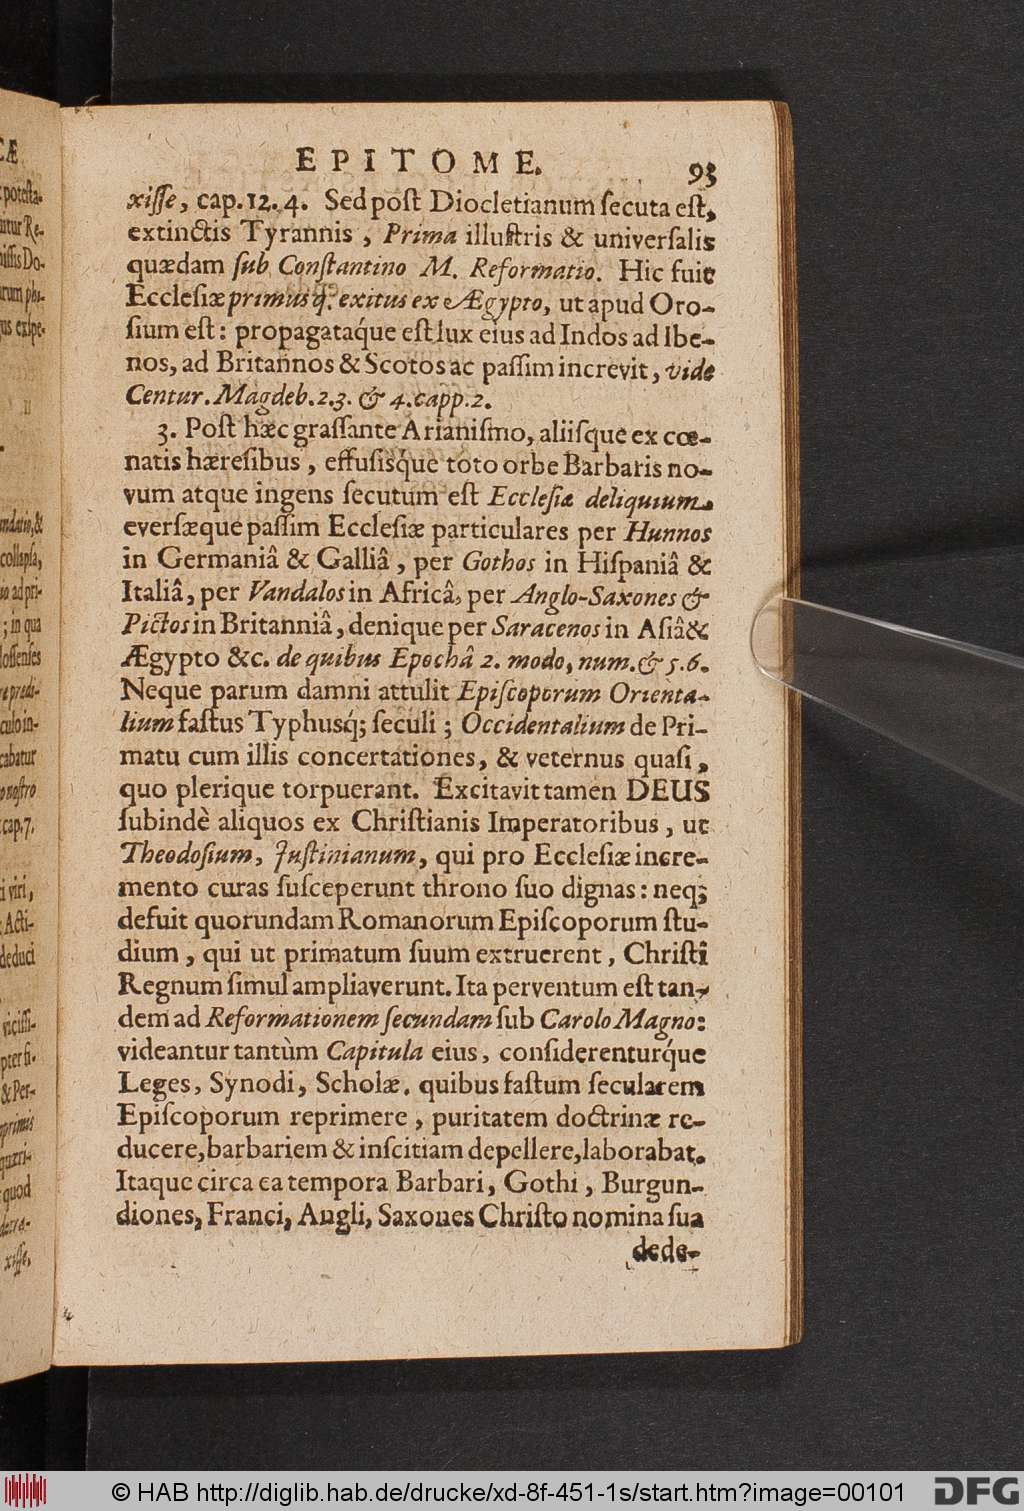 EPITOME. 93
xiſſe, cap. 12. 4. Sed poſt Diocletianum ſecuta eſt,
extinctis Tyrannis, Prima illuſtris & univerſalis
quædam ſub Conſtantino M. Reformatio. Hic fuit
Eccleſiæ primusq́; exitus ex Ægypto, ut apud Oro-
ſium eſt: propagataq́ue eſt lux eius ad Indos ad Ibe-
nos, ad Britannos & Scotos ac paſſim increvit, vide
Centur. Magdeb. 2. 3. & 4. capp. 2.
3. Poſt hæc graſſante Arianiſmo, aliiſque ex cœ-
natis hæreſibus, effuſisq́ue toto orbe Barbaris no-
vum atque ingens ſecutum eſt Eccleſiæ deliquium,
everſæque paſſim Eccleſiæ particulares per Hunnos
in Germaniâ & Galliâ, per Gothos in Hiſpaniâ &
Italiâ, per Vandalos in Africâ, per Anglo-Saxones &
Pictos in Britanniâ, denique per Saracenos in Aſiâ &
Ægypto &c. de quibus Epochâ 2. modo, num. & 5. 6.
Neque parum damni attulit Epiſcoporum Orienta-
lium faſtus Typhusq́; ſeculi; Occidentalium de Pri-
matu cum illis concertationes, & veternus quaſi,
quo plerique torpuerant. Excitavit tamen DEUS
ſubindè aliquos ex Chriſtianis Imperatoribus, ut
Theodoſium, Juſtinianum, qui pro Eccleſiæ incre-
mento curas ſuſceperunt throno ſuo dignas: neq;
defuit quorundam Romanorum Epiſcoporum ſtu-
dium, qui ut primatum ſuum extruerent, Chriſti
Regnum ſimul ampliaverunt. Ita perventum eſt tan-
dem ad Reformationem ſecundam ſub Carolo Magno:
videantur tantùm Capitula eius, conſiderenturq́ue
Leges, Synodi, Scholæ, quibus faſtum ſecularem
Epiſcoporum reprimere, puritatem doctrinæ re-
ducere, barbariem & inſcitiam depellere, laborabat.
Itaque circa ea tempora Barbari, Gothi, Burgun-
diones, Franci, Angli, Saxones Chriſto nomina ſua
dede-
© HAB http://diglib.hab.de/drucke/xd-8f-451-1s/start.htm?image=00101
DFG